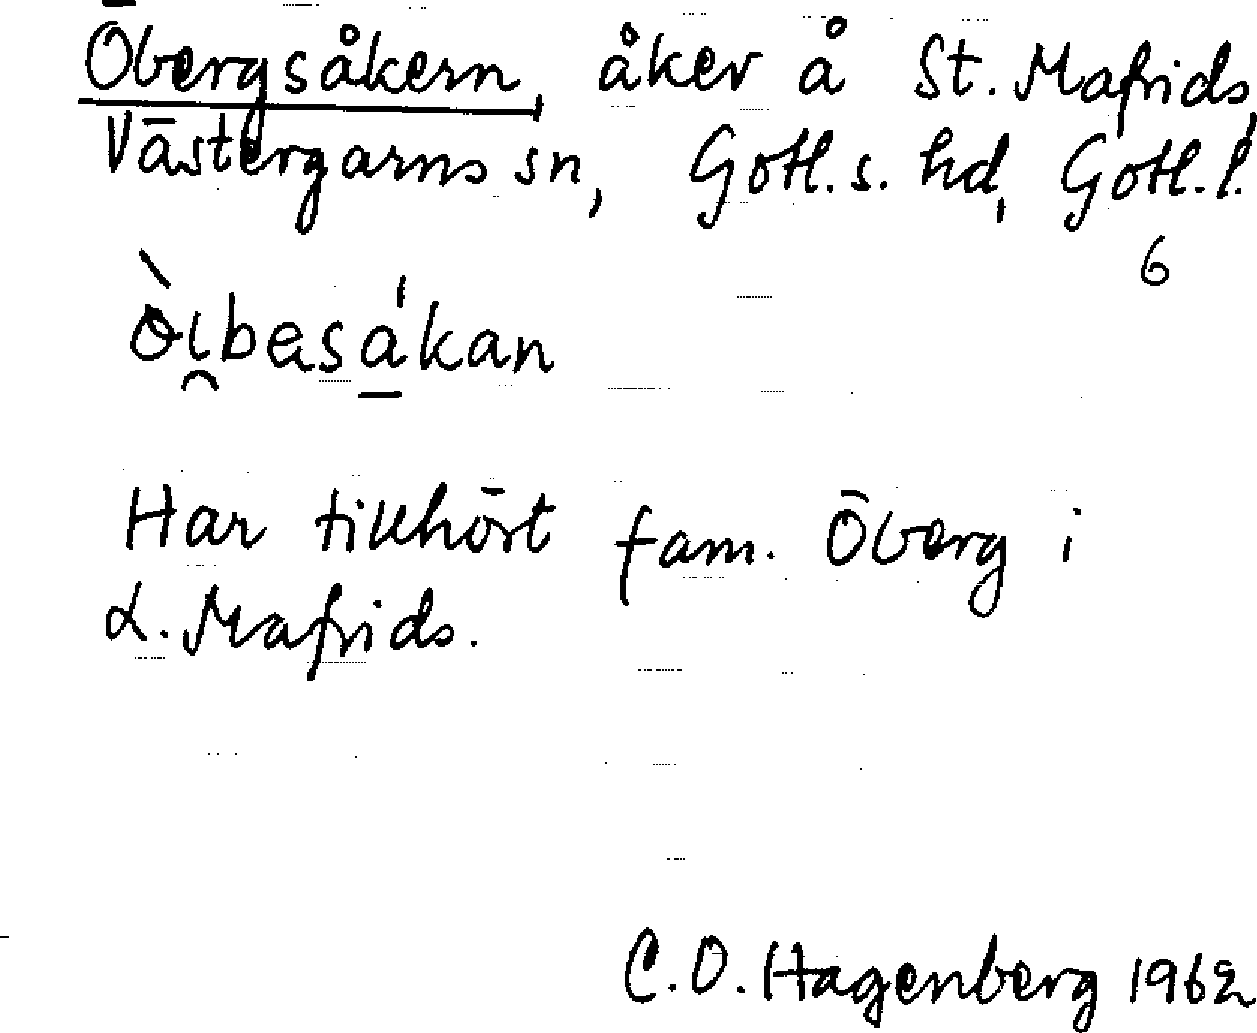 Öbergsåkern, åker å St. Mafrids,
Västergarns sn, Gotl. s. hd, Gotl. l.
6
Har tillhört fam. Öberg i
L. Mafrids.
C. O. Hagenberg 1962